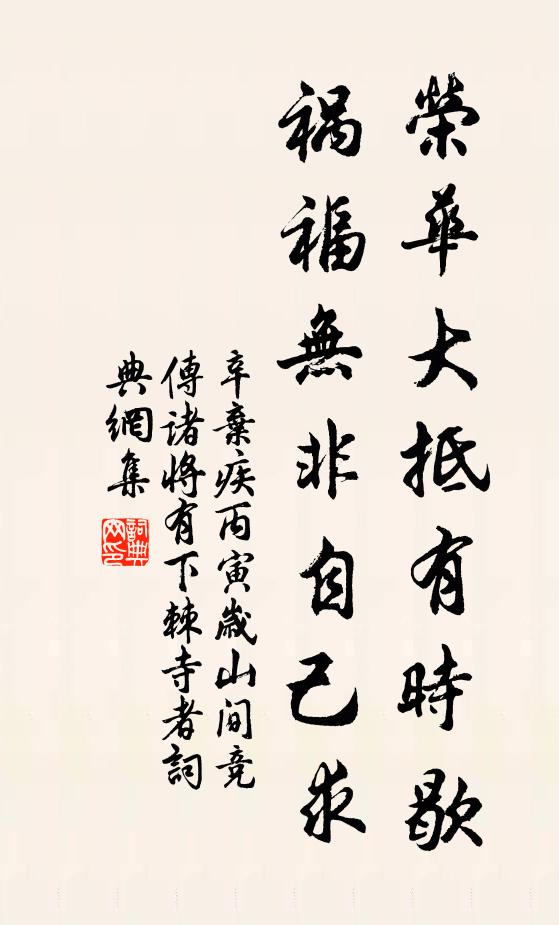 榮華大抵有時歇
禍福無非自己求
辛棄疾丙寅歲山間競
傳諸將有下棘寺者詞
典網集
詞典網印